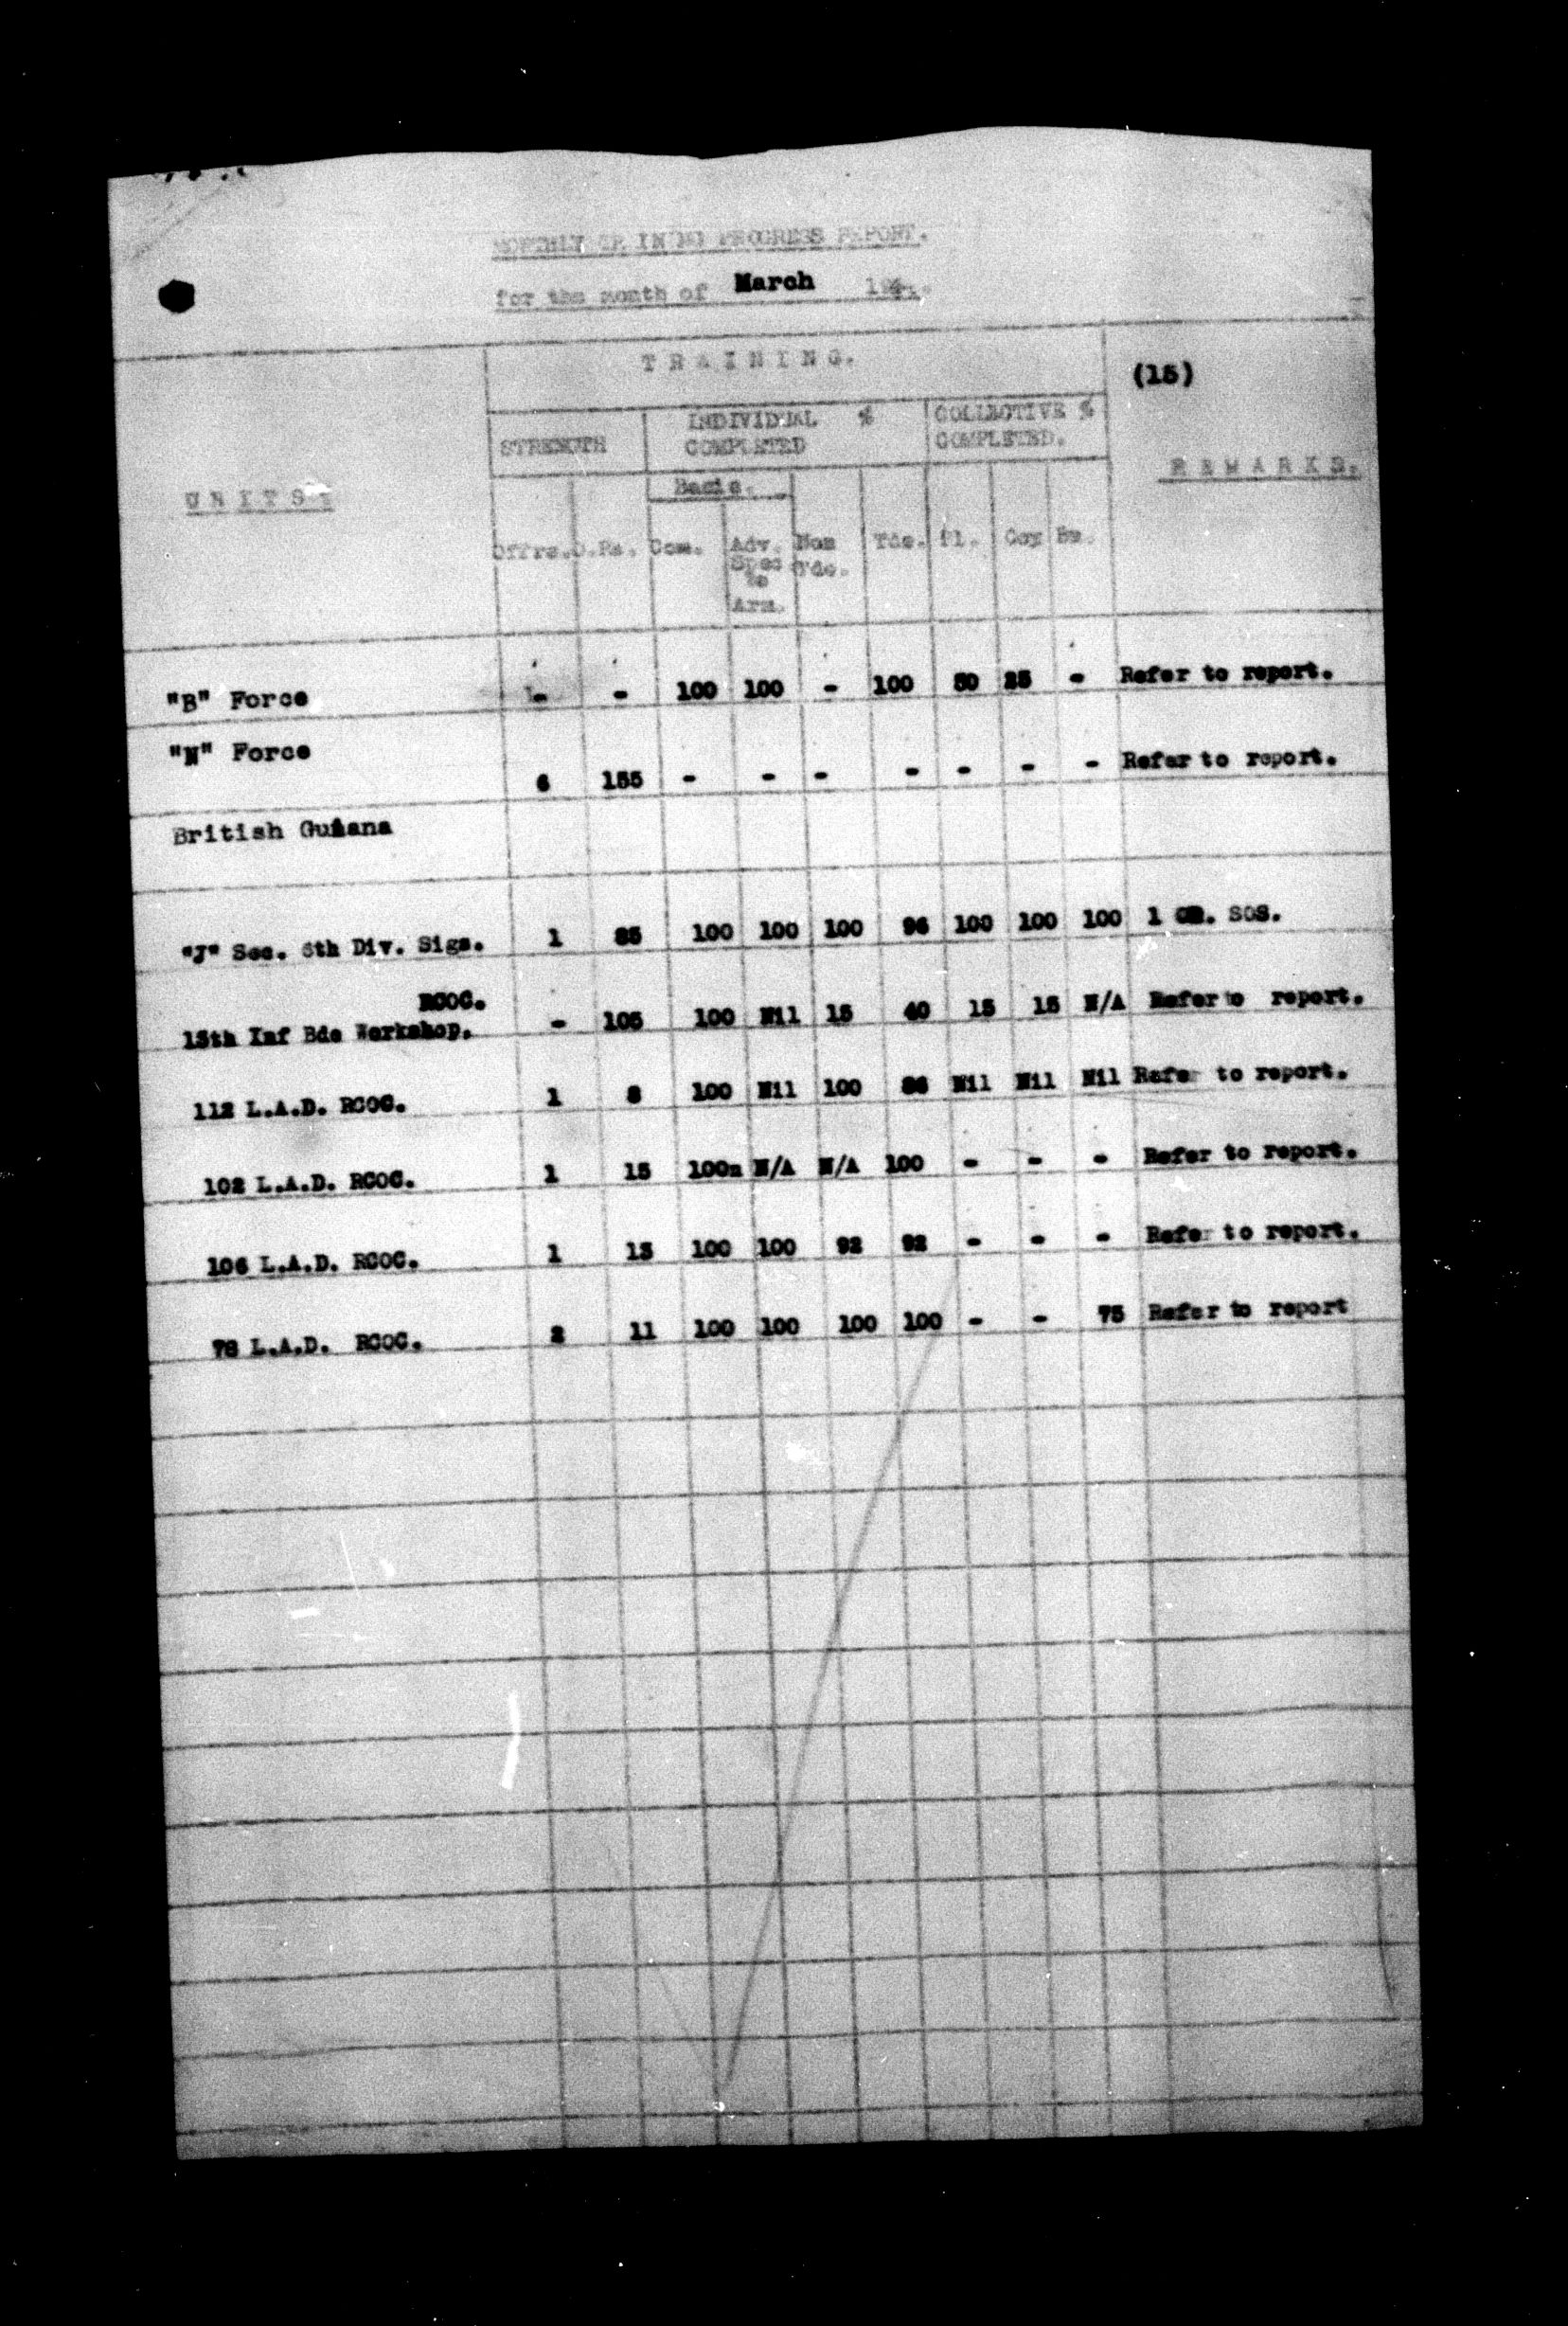 MONTHLY TRAINING PROGRESS REPORT.
for the month of March 194
TRAINING.
(15)
STRENGTH INDIVIDUAL % COMPLETED COLLECTIVE % COMPLETED.
UNITS. REMARKS.
Basic.
Offrs. O.Rs. Com. Adv. Non Tds. Pl. Coy Bn.
Spec Tds.
to
Arm.
"B" Force - - 100 100 - 100 50 25 - Refer to report.
"N" Force
6 155 - - - - - - - Refer to report.
British Guiana
"J" Sec. 6th Div. Sigs. 1 35 100 100 100 96 100 100 100 1 OR. SOS.
RCOC.
15th Inf Bde Workshop. - 105 100 Nil 15 40 15 15 N/A Refer to report.
112 L.A.D. RCOC. 1 8 100 Nil 100 86 Nil Nil Nil Refer to report.
102 L.A.D. RCOC. 1 15 100 N/A N/A 100 - - - Refer to report.
106 L.A.D. RCOC. 1 13 100 100 92 92 - - - Refer to report.
78 L.A.D. RCOC. 2 11 100 100 100 100 - - 75 Refer to report